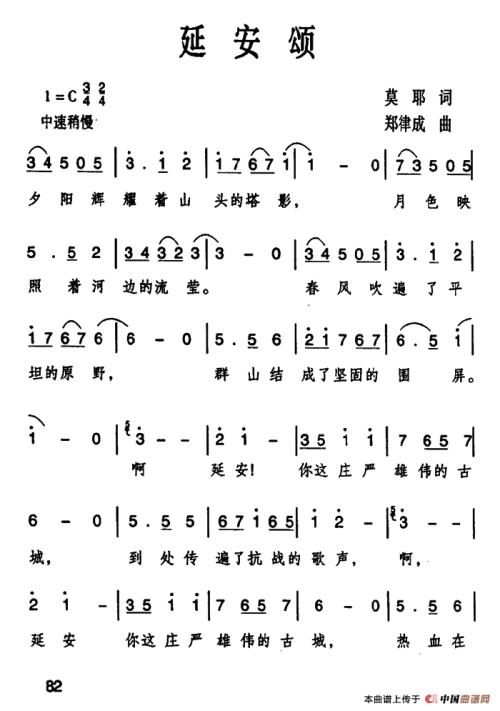 延安颂
1=C 3/4 2/4
莫耶 词
中速稍慢
郑律成 曲
34505 | 3.12 | 17671 | 1-0 | 73505
夕阳辉 耀着山 头的塔影, 月色映
5.52 | 34323 | 3-0 | 34505 | 3.12
照着河 边的流莹。 春风吹 遍了平
17676 | 6-0 | 5.56 | 21767 | 6.51
坦的原野, 群山结 成了坚固的 围屏。
1-0 | 3-- | 2-- | 3511 | 7657
啊 延安! 你这庄严 雄伟的古
6-0 | 5.55 | 67165 | 12- | 3--
城, 到处传 遍了抗战的 歌声, 啊,
21- | 3511 | 7657 | 6-0 | 5.55
延安 你这庄严 雄伟的古 城, 热血在
82
本曲谱上传于 中国曲谱网